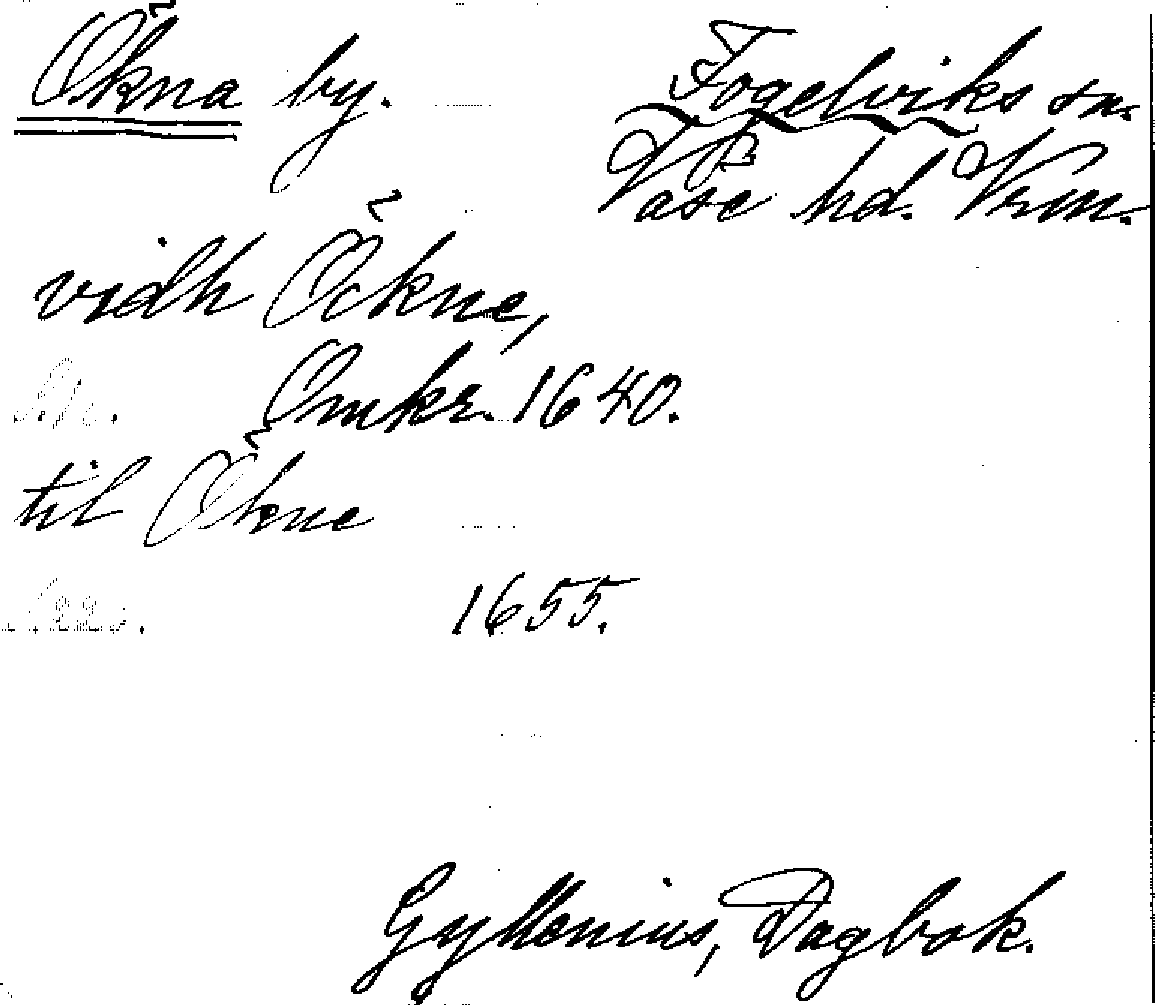 Økna by. Fogelviks sn.
Väse hd. Vrm.
vidh Öckne,
Omkr. 1640.
til Ökne
1655.
Gyllenius, Dagbok.